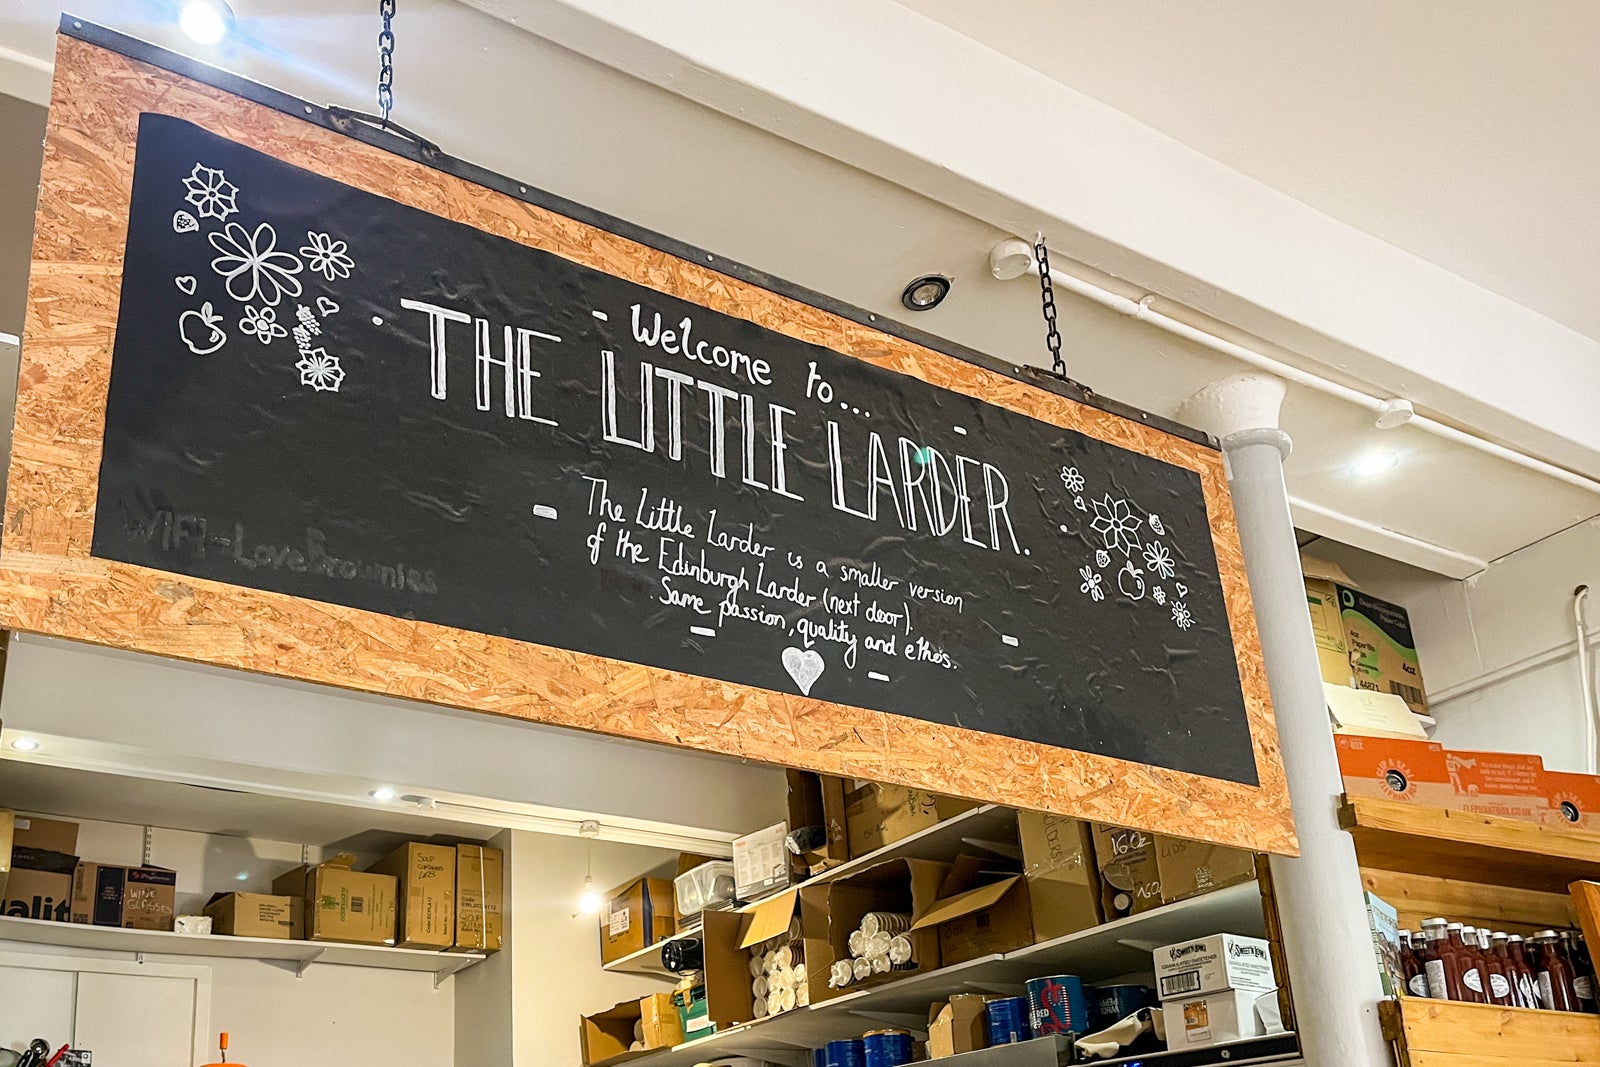 Welcome to...
THE LITTLE LARDER.
The Little Larder is a smaller version
of the Edinburgh Larder (next door).
Same passion, quality and ethos.
WIFI-LoveBrownies
4oz
44871
ELEPHANTBOX.CO.UK
WINE
GLASSES
SOUP
CONTAINER
LIDS
16oz
LIDS
SWEET'N LOW
GRANULATED SWEETENER
SWEET'N LOW